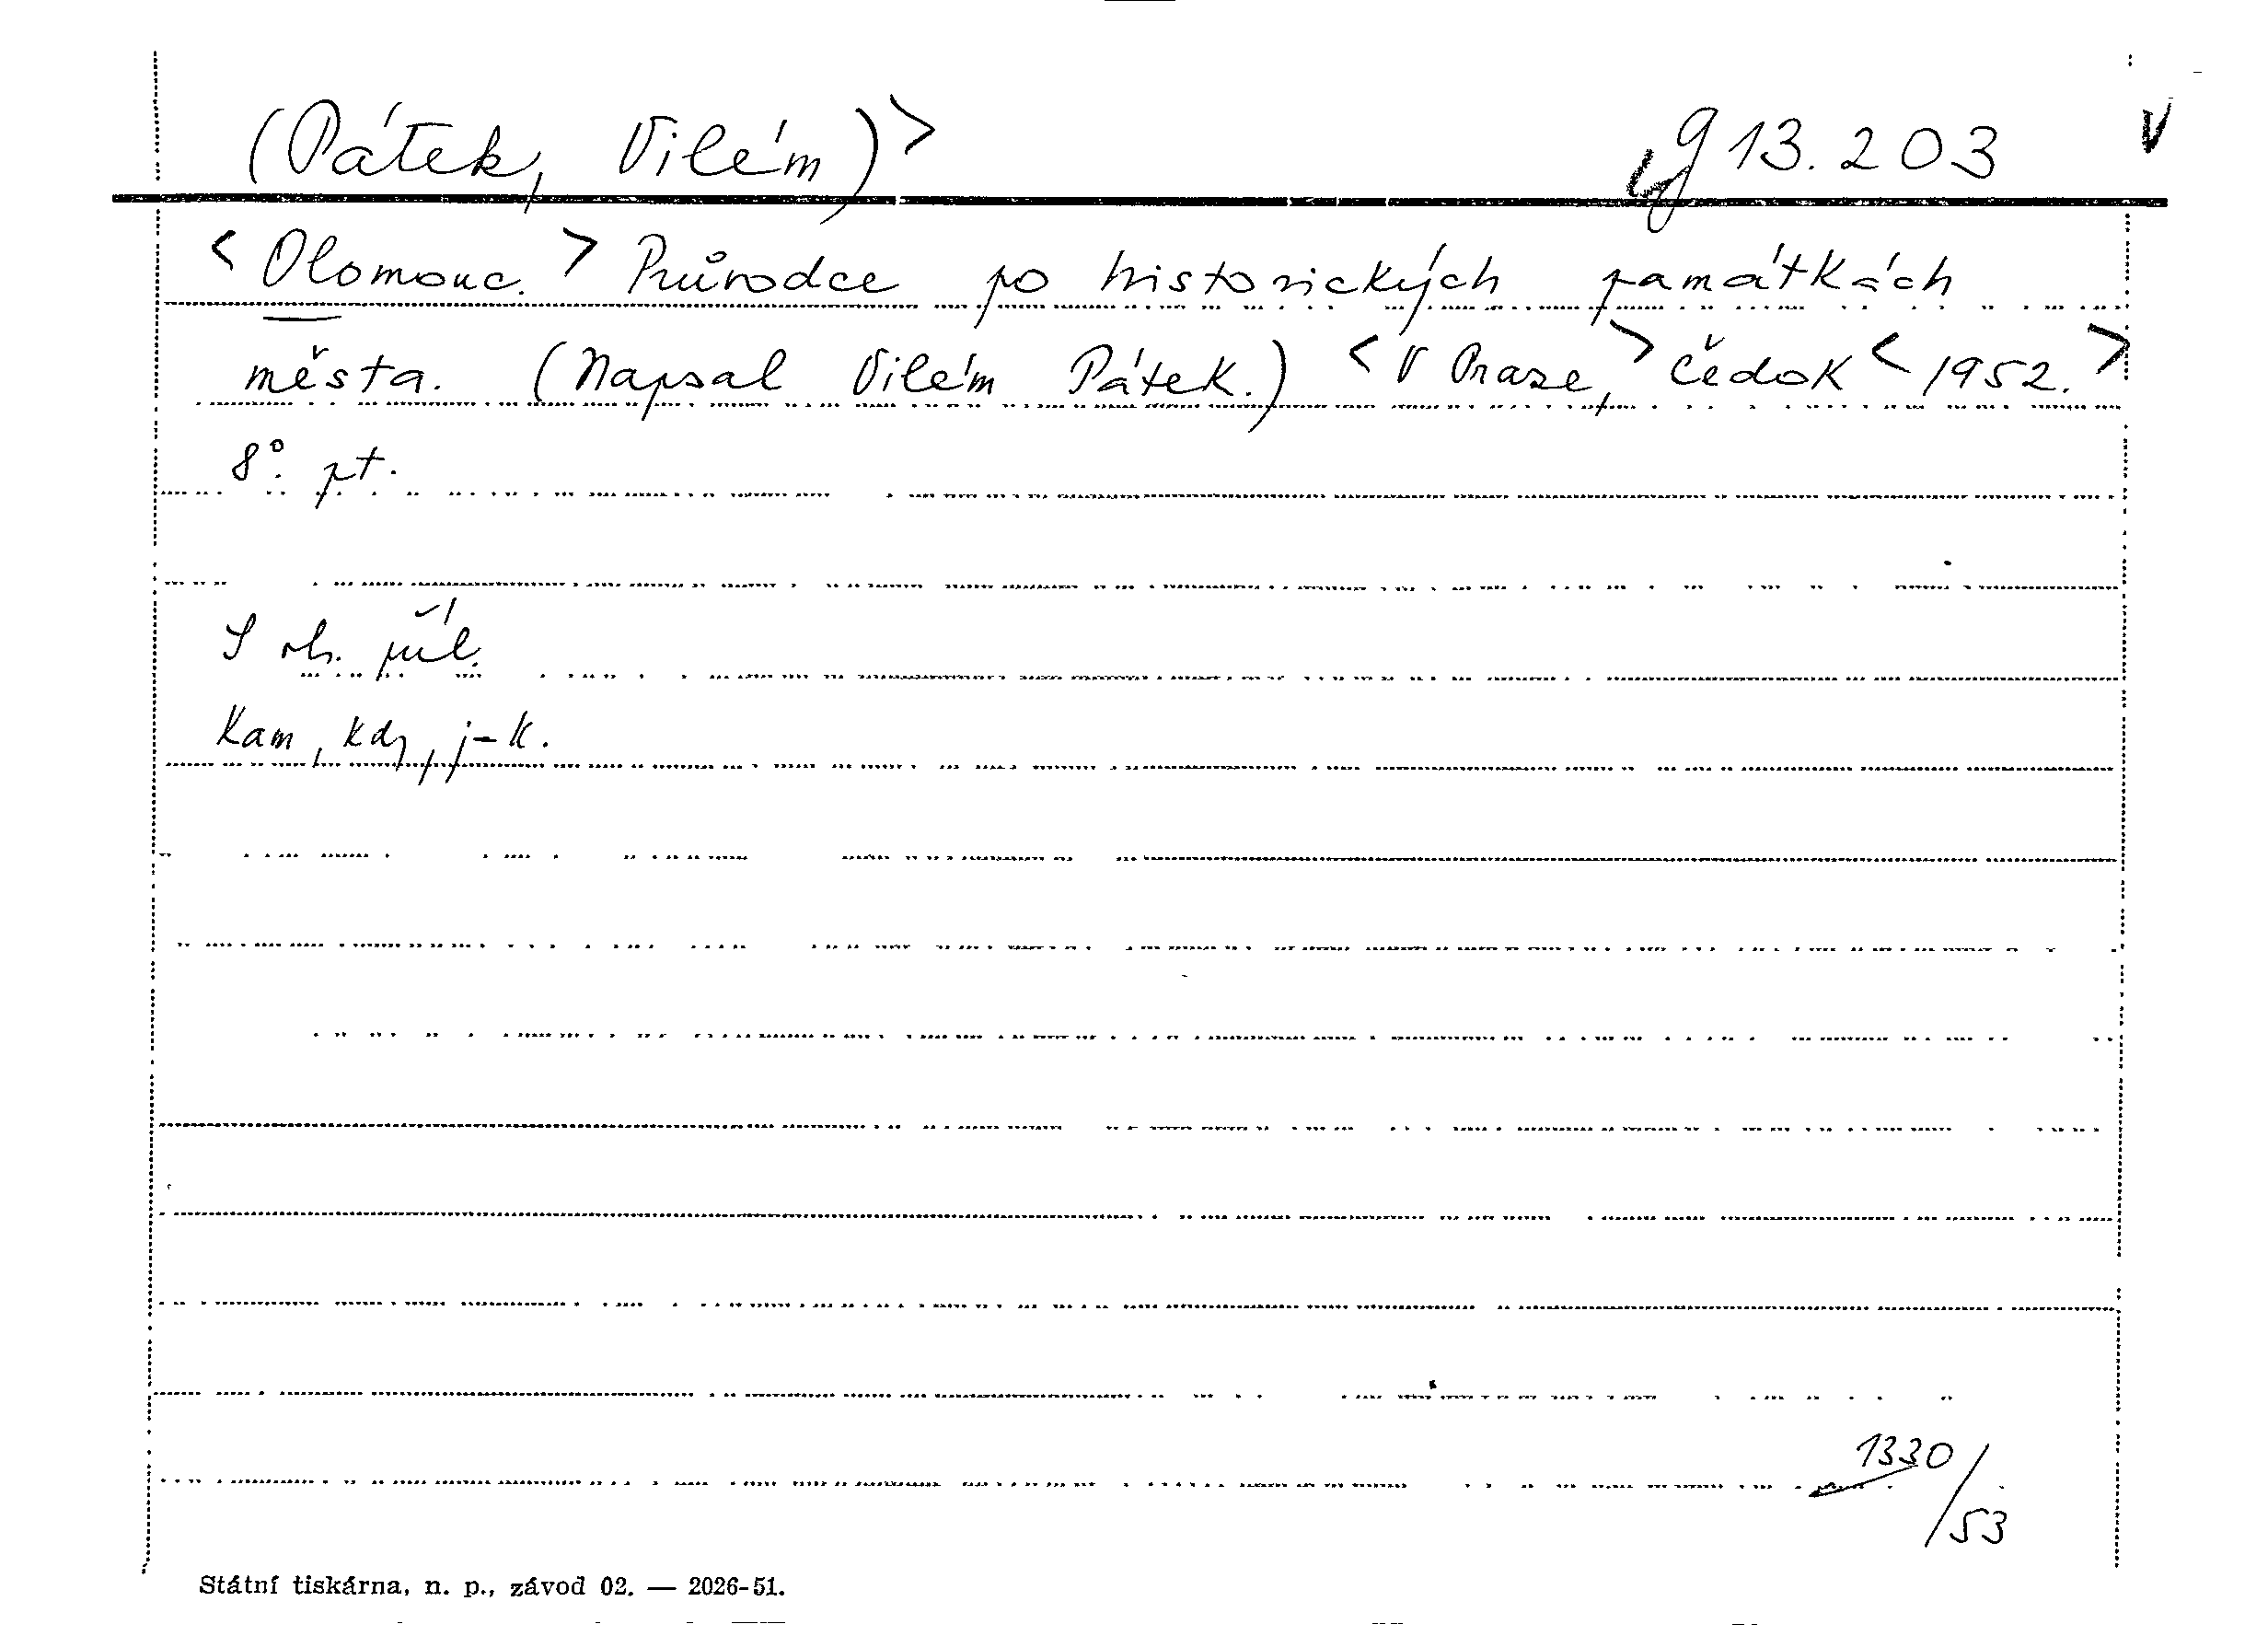 (Pátek, Vilém)> g 13.203 V
<Olomouc.> Průvodce po historických památkách
města. (Napsal Vilém Pátek.) <V Praze,> Čedok <1952.>
8°. pt.
S ob. příl.
Kam, kdy, jak.
1330/53
Státní tiskárna, n. p., závod 02. — 2026-51.